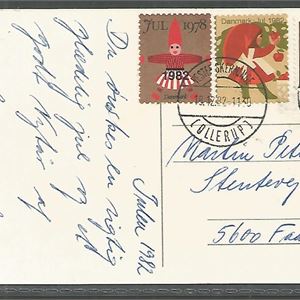 JUL 1978
1982
Danmark
Danmark · Jul 1982
15.12.82-11.30
(OLLERUP)
Du ønskes en rigtig
glædig jul og et
godt Nytår af
Julen 1982
Martin Pet
Stenteve
5600 Faa